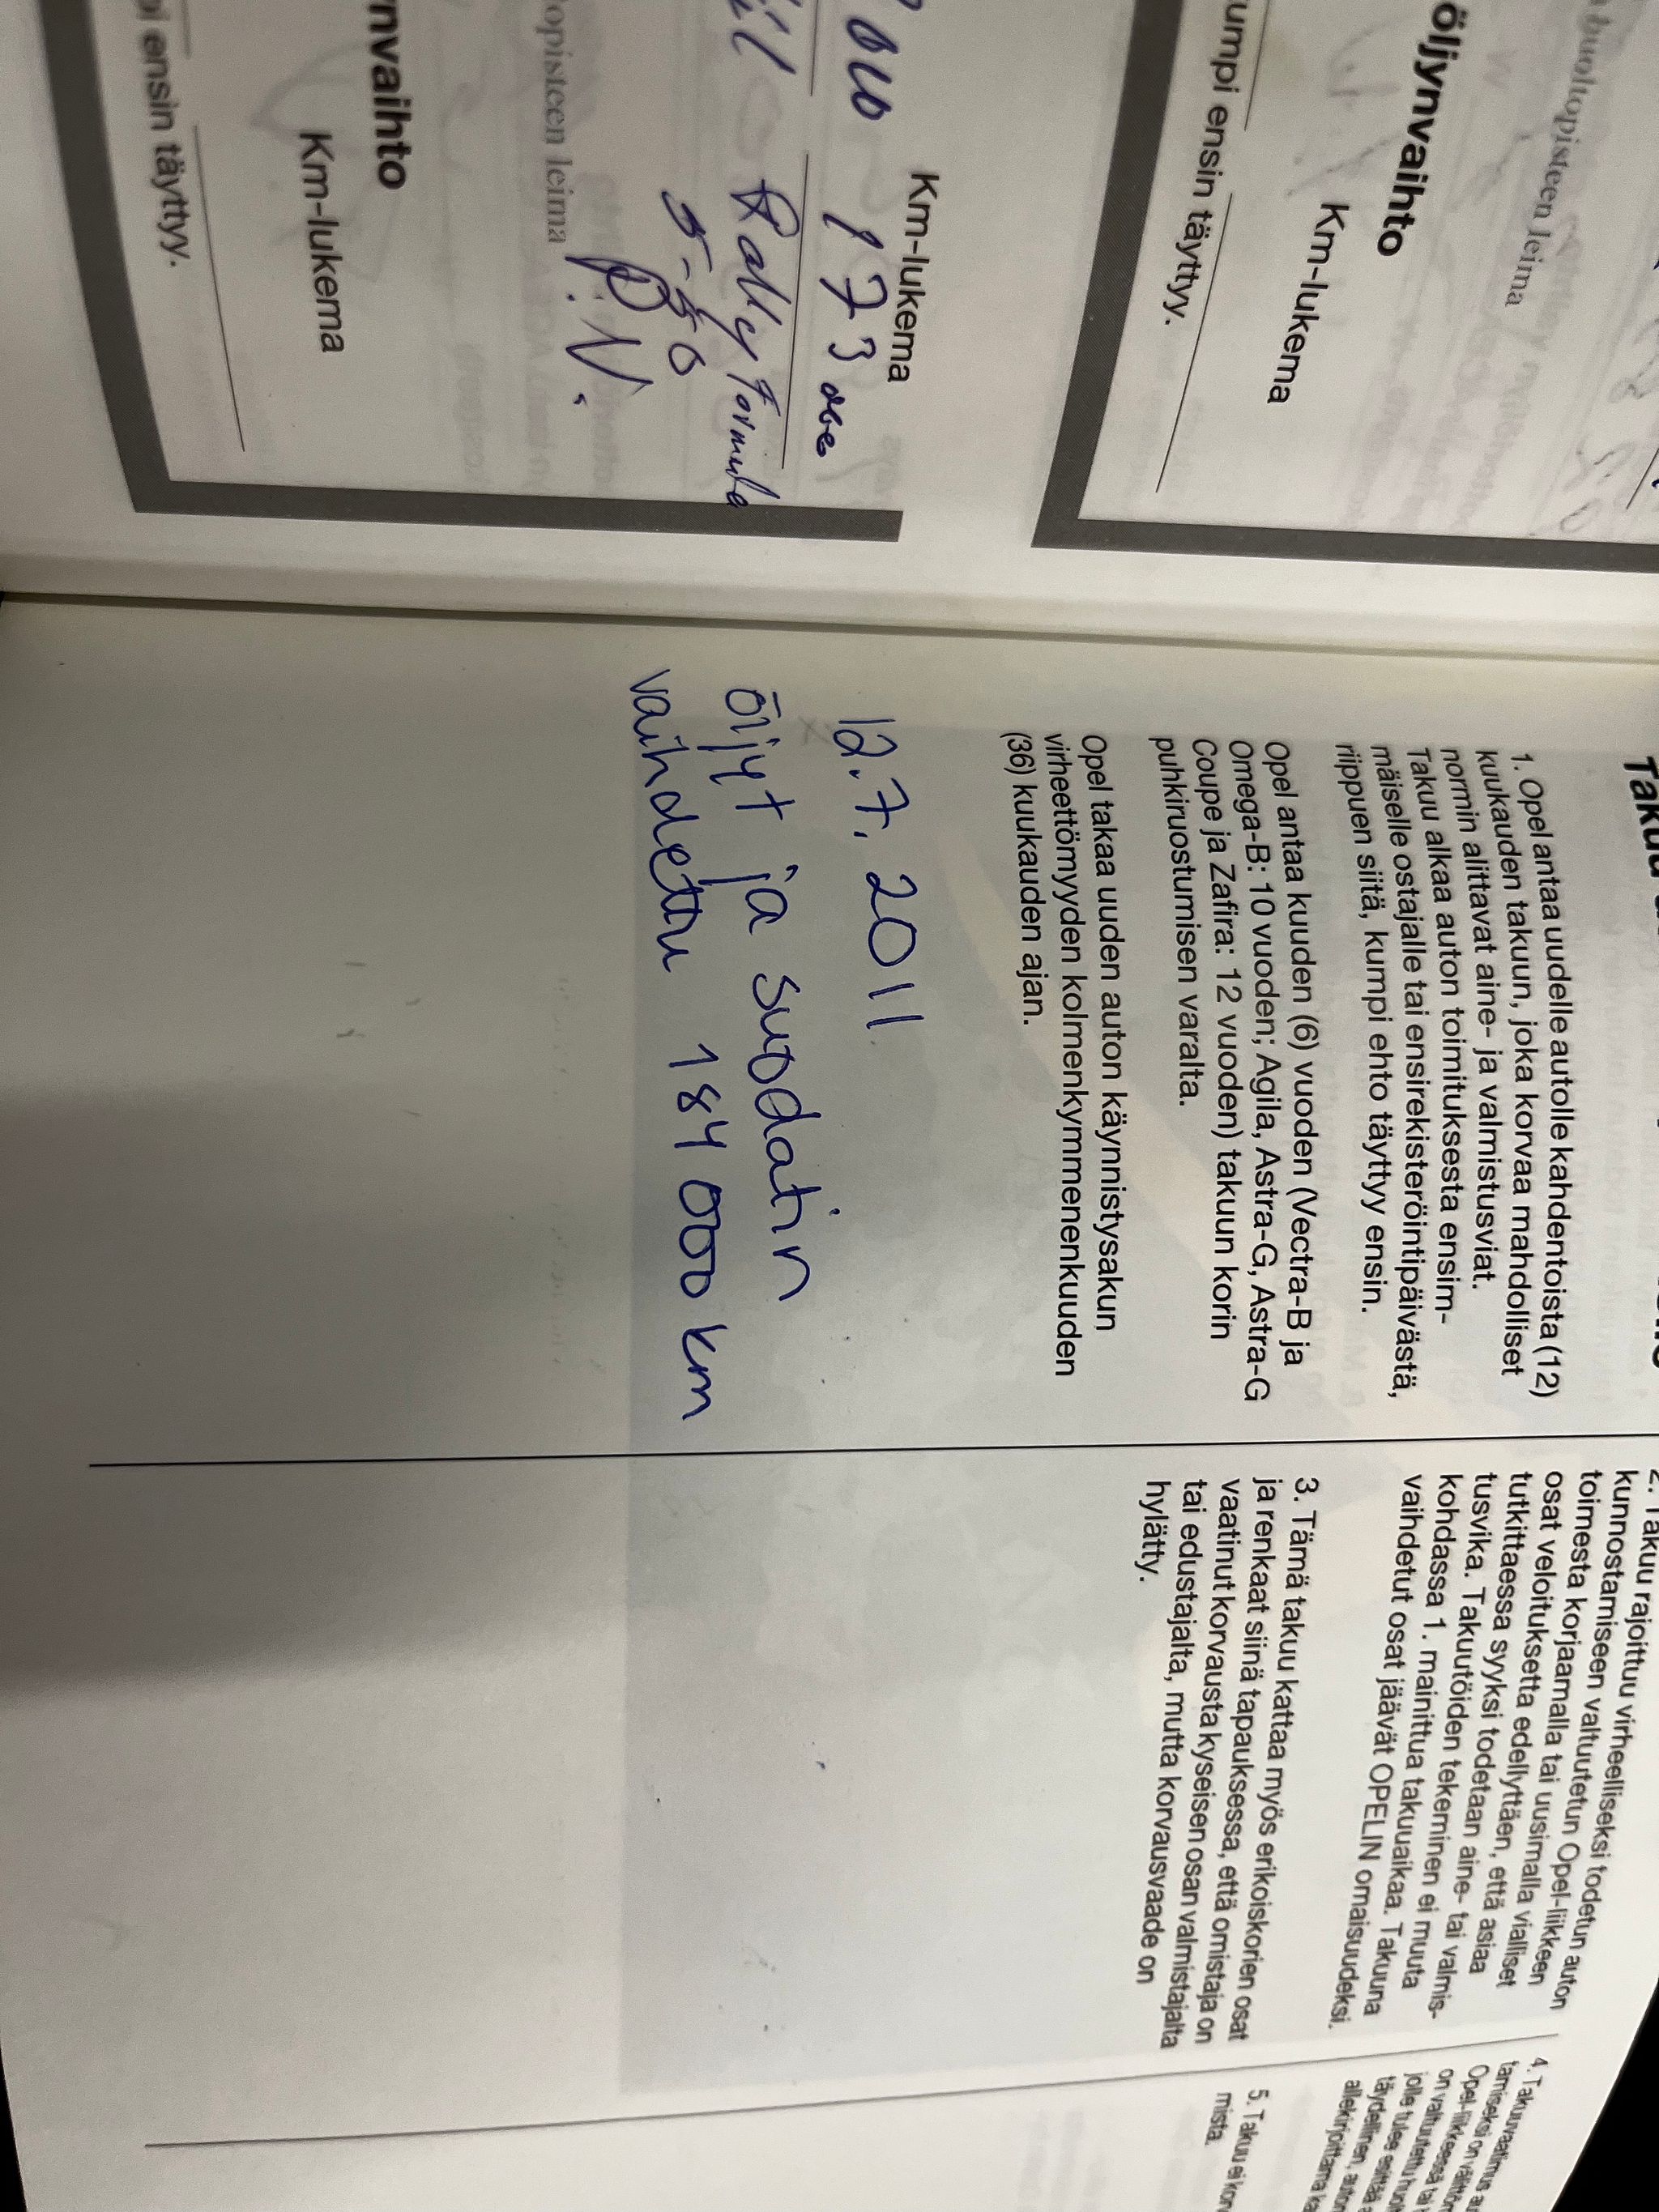 buoltopisteen leima
öljynvaihto
Km-lukema
umpi ensin täyttyy.
Km-lukema
173 000
Rally Formula
5-50
P.N.
opisteen leima
nvaihto
Km-lukema
pi ensin täyttyy.
1. Opel antaa uudelle autolle kahdentoista (12)
kuukauden takuun, joka korvaa mahdolliset
normin alittavat aine- ja valmistusviat.
Takuu alkaa auton toimituksesta ensim-
mäiselle ostajalle tai ensirekisteröintipäivästä,
riippuen siitä, kumpi ehto täyttyy ensin.
Opel antaa kuuden (6) vuoden (Vectra-B ja
Omega-B: 10 vuoden; Agila, Astra-G, Astra-G
Coupe ja Zafira: 12 vuoden) takuun korin
puhkiruostumisen varalta.
Opel takaa uuden auton käynnistysakun
virheettömyyden kolmenkymmenenkuuden
(36) kuukauden ajan.
12.7.2011
öijyt ja suodatin
vaihdettu 184 000 km
2. Takuu rajoittuu virheelliseksi todetun auton
kunnostamiseen valtuutetun Opel-liikkeen
toimesta korjaamalla tai uusimalla vialliset
osat veloituksetta edellyttäen, että asiaa
tutkittaessa syyksi todetaan aine- tai valmis-
tusvika. Takuutöiden tekeminen ei muuta
kohdassa 1. mainittua takuuaikaa. Takuuna
vaihdetut osat jäävät OPELIN omaisuudeksi.
3. Tämä takuu kattaa myös erikoiskorien osat
ja renkaat siinä tapauksessa, että omistaja on
vaatinut korvausta kyseisen osan valmistajalta
tai edustajalta, mutta korvausvaade on
hylätty.
4. Takuuvaatimus
tamiseksi on
Opel-liikkeessä tai
on valtuutettu
jolle tulee esittää
täydellinen, auton
allekirjoittama
5. Takuu ei
mista.